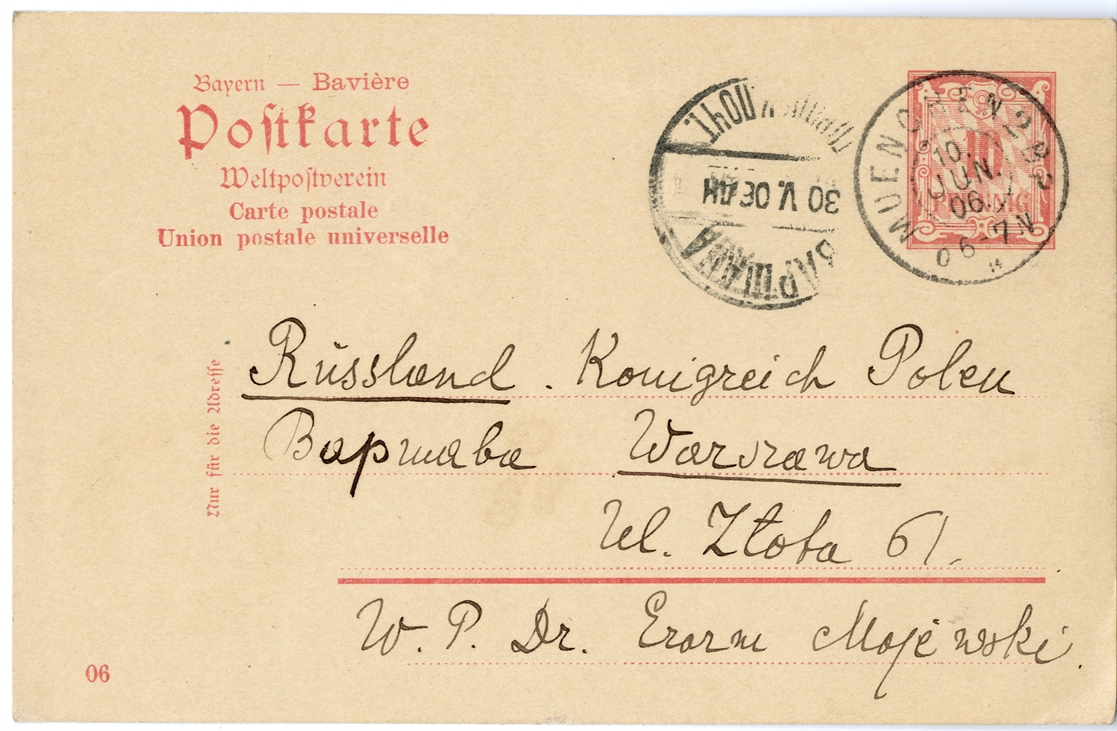 Bayern — Bavière
Postkarte
Weltpostverein
Carte postale
Union postale universelle
30 V. 06
ВАРШАВА
MUENCHEN 2 BP
10.
JUN.
06.
PFENNIG
6-7 N
Nur für die Adresse
Russland. Konigreich Polen
Варшава Warszawa
Ul. Złota 61.
W. P. Dr. Erazm Majewski.
06